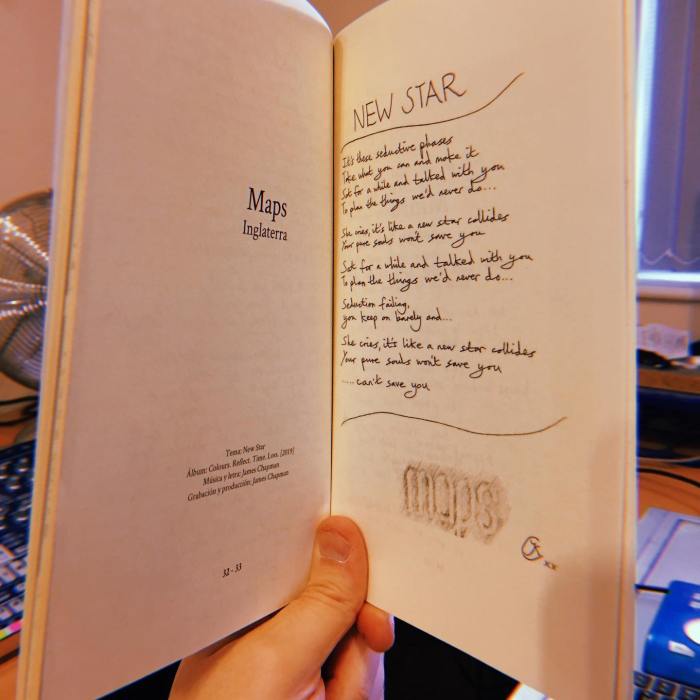 Maps
Inglaterra
Tema: New Star
Álbum: Colours. Reflect. Time. Loss. [2019]
Música y letra: James Chapman
Grabación y producción: James Chapman
32 - 33
NEW STAR
It's these seductive phases
Take what you can and make it
Sat for a while and talked with you
To plan the things we'd never do...
She cries, it's like a new star collides
Your pure souls won't save you
Sat for a while and talked with you
To plan the things we'd never do...
Seduction failing,
you keep on barely and...
She cries, it's like a new star collides
Your pure souls won't save you
.....can't save you
maps
xx